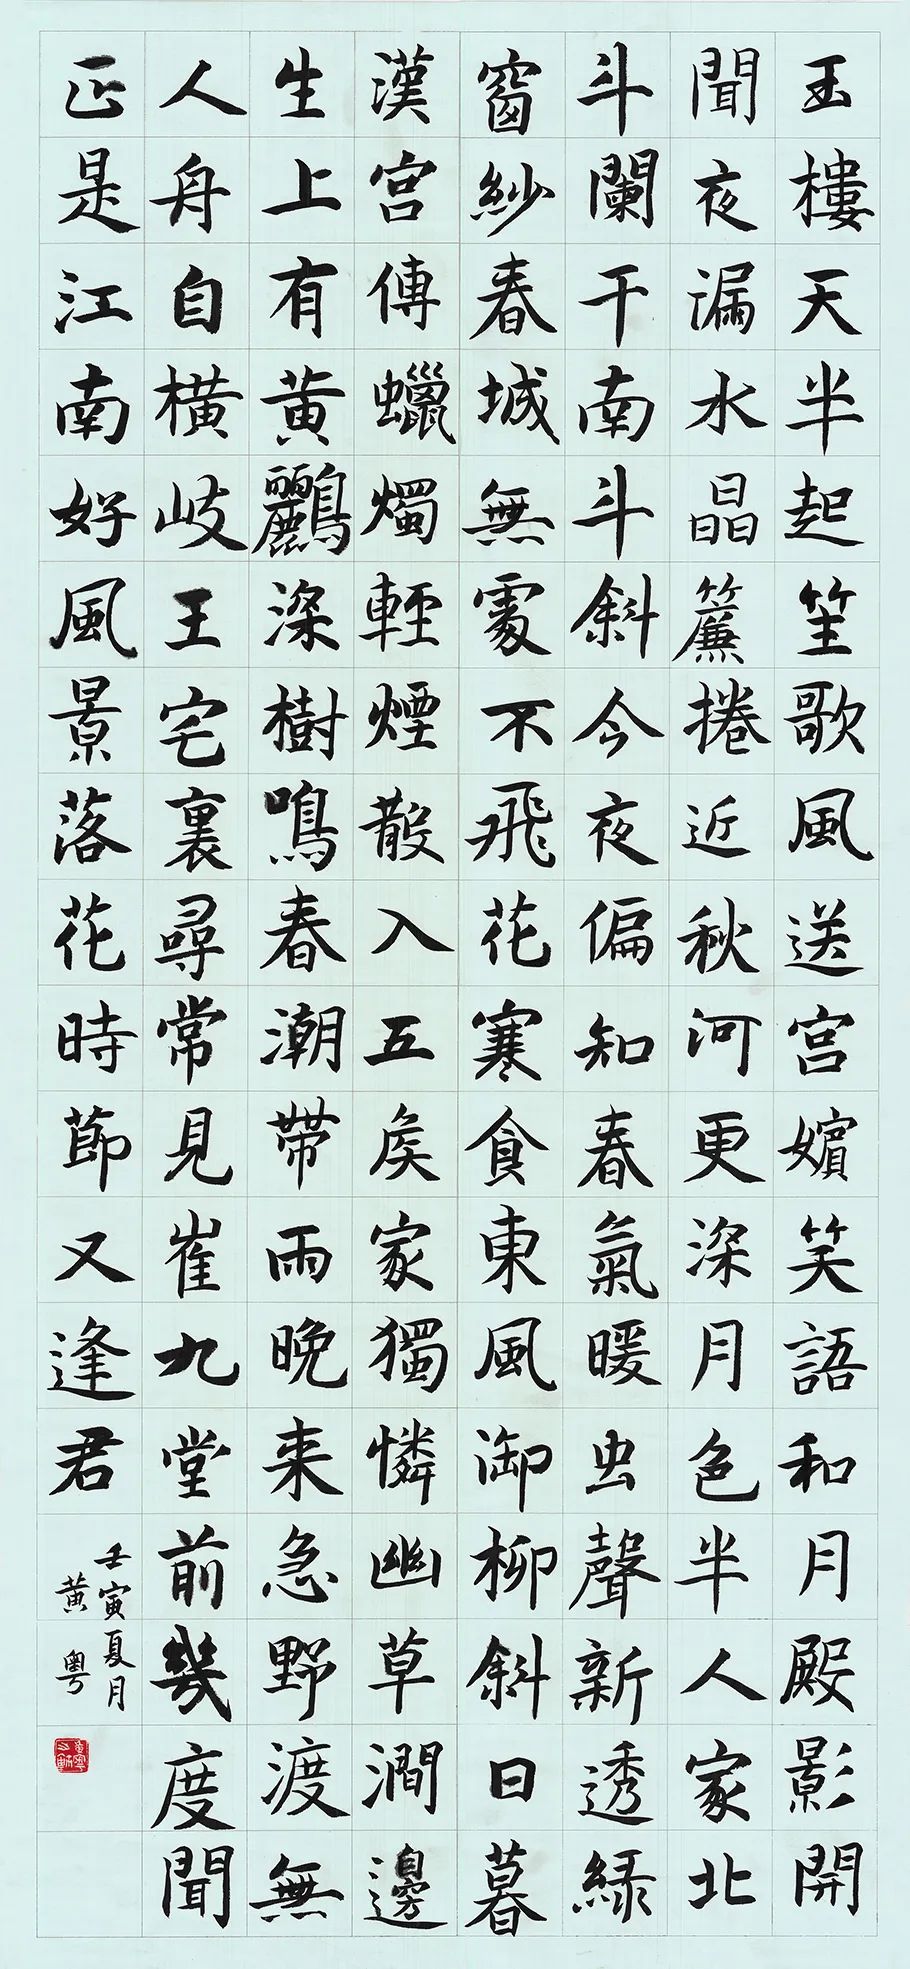 玉樓天半起笙歌風送宮嬪笑語和月殿影開
聞夜漏水晶簾捲近秋河更深月色半人家北
斗闌干南斗斜今夜偏知春氣暖虫聲新透綠
窗紗春城無處不飛花寒食東風御柳斜日暮
漢宮傳蠟燭輕煙散入五侯家獨憐幽草澗邊
生上有黃鸝深樹鳴春潮帶雨晚来急野渡無
人舟自橫岐王宅裏尋常見崔九堂前幾度聞
正是江南好風景落花時節又逢君
壬寅夏月
黄粤